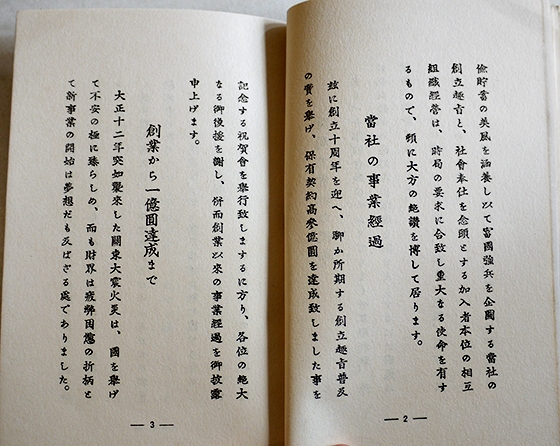 儉貯蓄の美風を涵養し以て富國強兵を企圖する當社の
創立趣旨と、社會奉仕を念頭とする加入者本位の相互
組織經營は、時局の要求に合致し重大なる使命を有す
るもので、頗に大方の絶讚を博して居ります。
當社の事業經過
玆に創立十周年を迎へ、聊か所期する創立趣旨普及
の實を擧げ、保有契約高參億圓を達成致しました事を
— 2 —
記念する祝賀會を擧行致しまするに方り、各位の絶大
なる御後援を謝し、併而創業以來の事業經過を御披露
申上げます。
創業から一億圓達成まで
大正十二年突如襲來した關東大震火災は、國を擧げ
て不安の極に臻らしめ、而も財界は疲弊困憊の折柄と
て新事業の開始は夢想だも及ばざる處でありました。
— 3 —